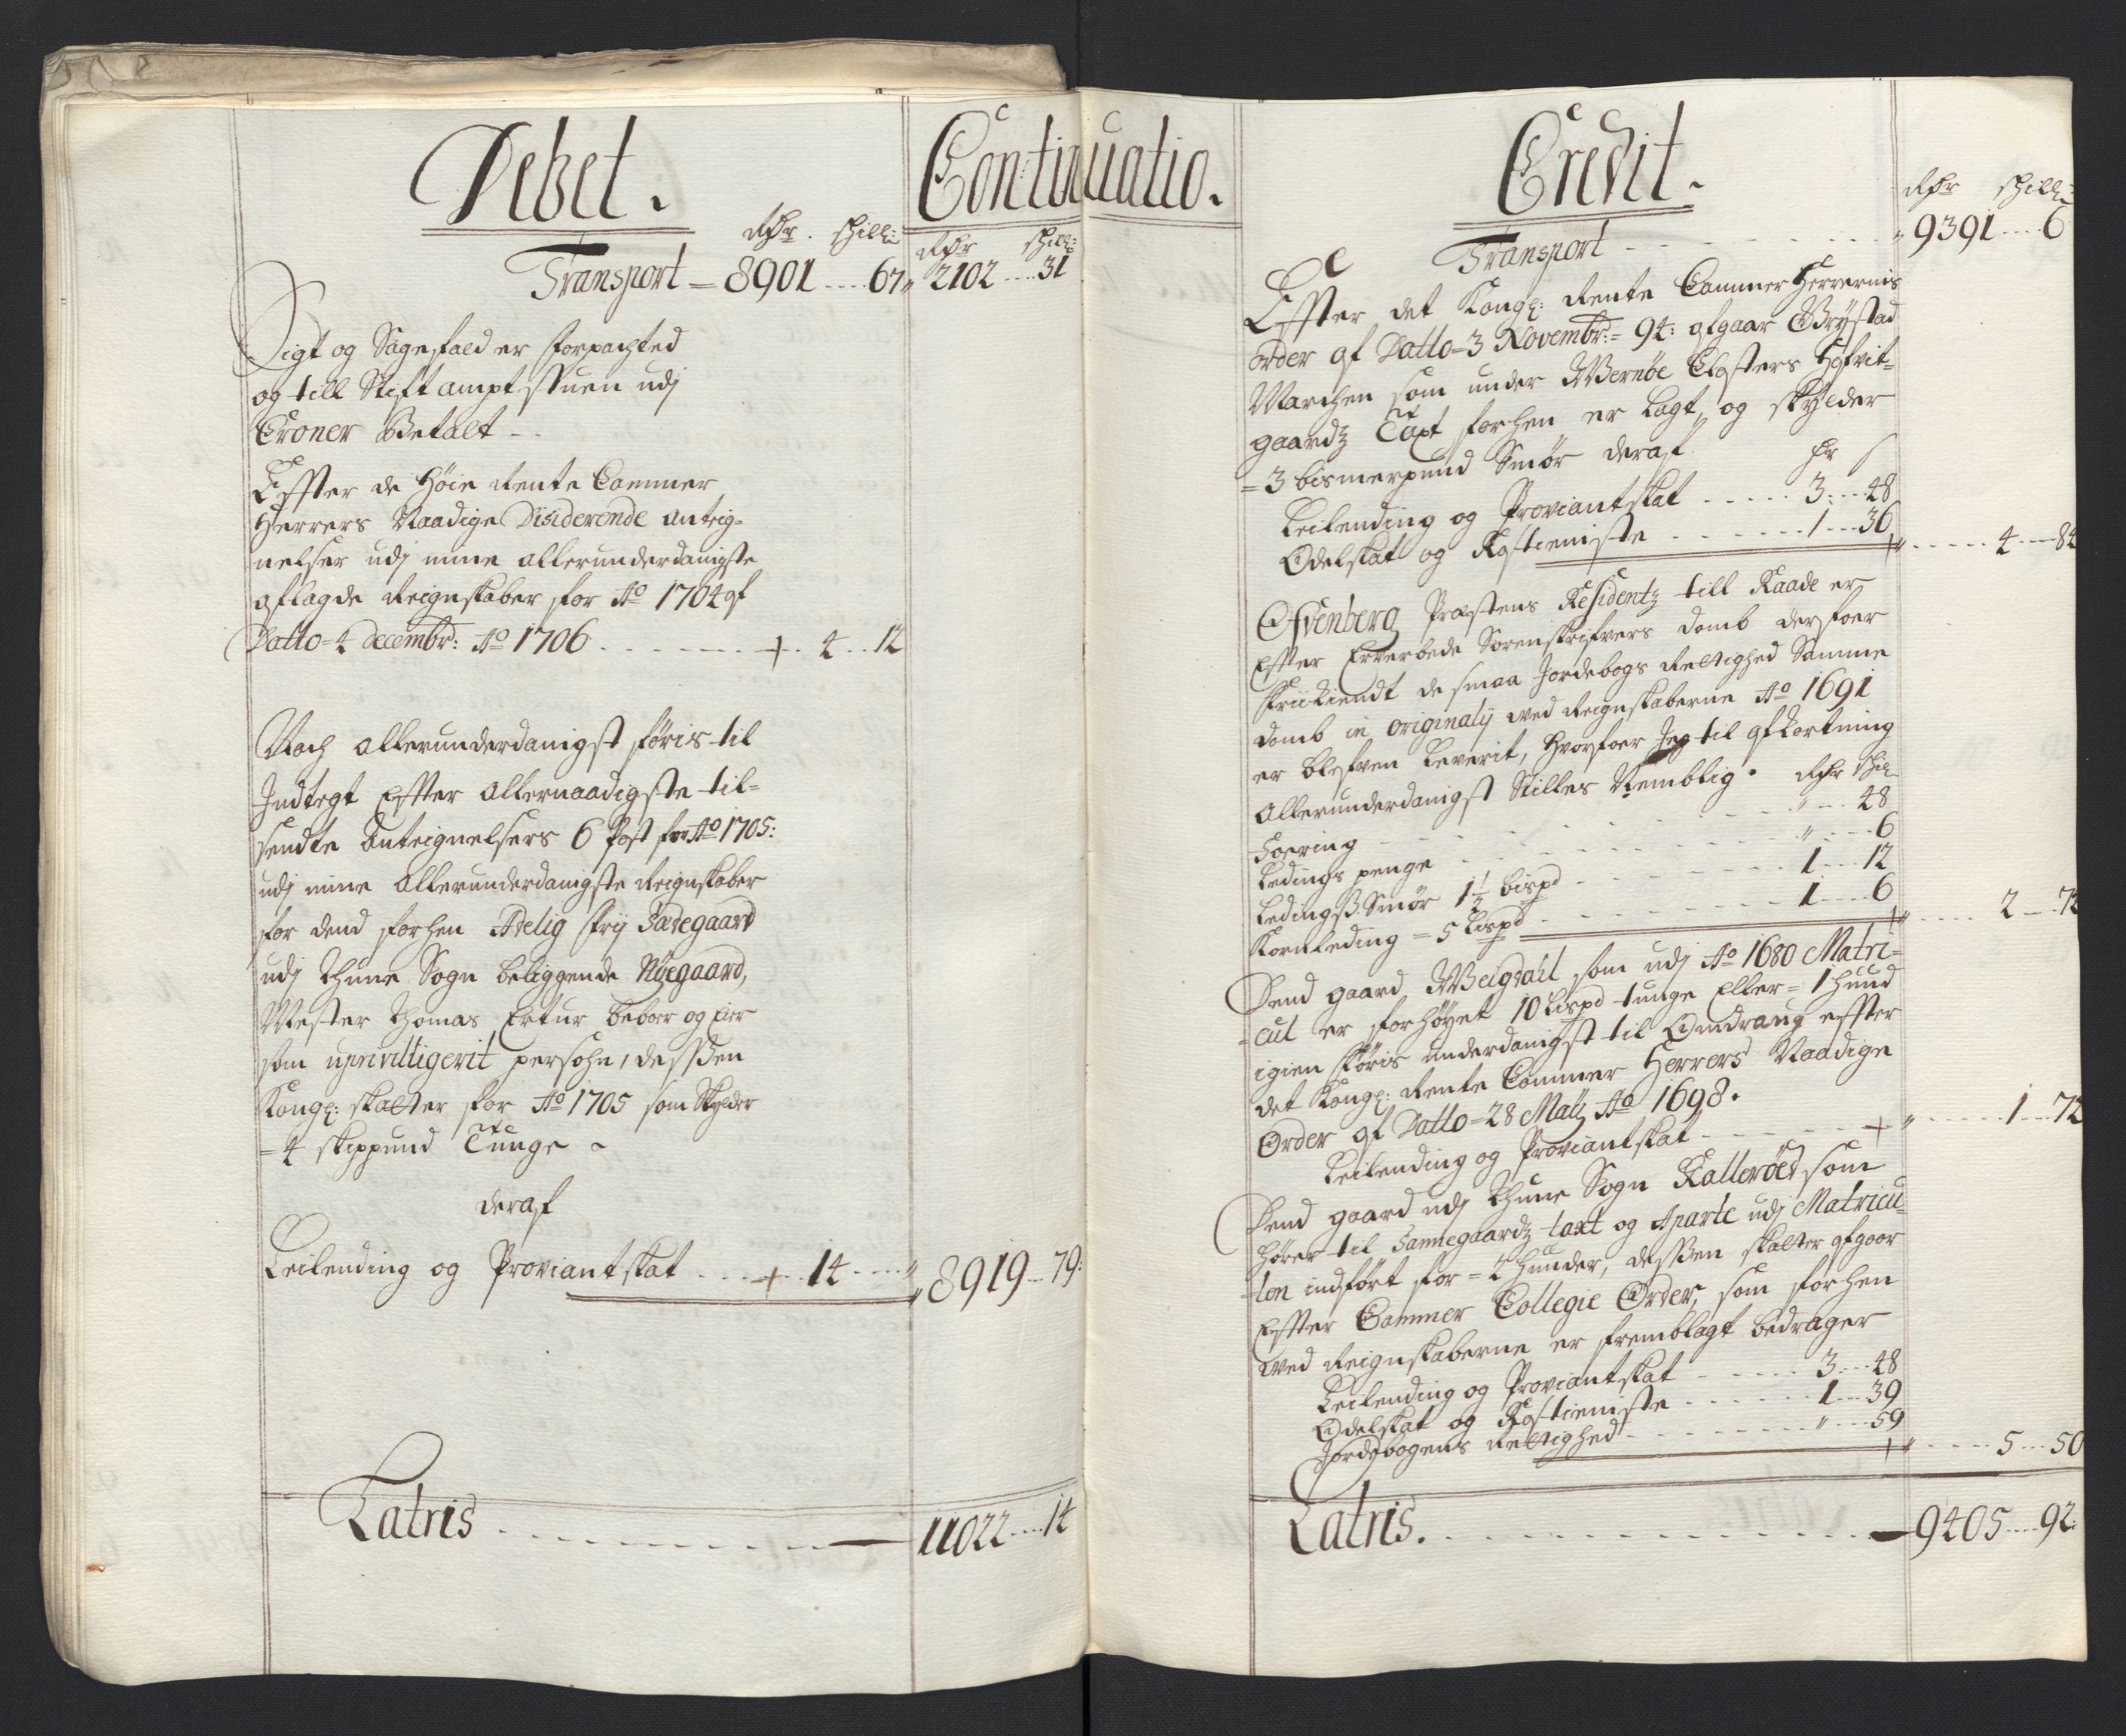 Debet.
Continuatio.
Rdr. skill:
Rdr skill:
Transport = 8901 .... 67 „ 2102 .... 31
Sigt og Sagefald er forpachted
og till Stiftamptstuen udj
Croner Betalt - -
Effter de Høie Rente Cammer
Herrers Naadige Disiderende anteig=
nelser udj mine allerunderdanigste
aflagde Reignskaber for Ao 1704 af
Datto = 4 decembr: Ao 1706 . . . . . . + . 4 .. 12
Noch allerunderdanigst føris til
Indtegt Effter allernaadigste til=
sendte Anteignelsers 6 Post for Ao 1705:
udj mine allerunderdanigste Reignskaber
for dend forhen Adelig frj Sædegaard
udj Thune Sogn beliggende Nøegaard,
Mester Thomas Ertur beboer og Eier
som uprivilligerit persohn, desssen
Kongl: skatter for Ao 1705 som skylder
= 4 skippund Tunge ~
deraf
Leilending og Proviantskat . . . + . . 14 . . . . „ 8919 .. 79:
Latris . . . . . . . . 11022 .... 14
Credit.
Rdr skill:
Transport - - - - - - - „ 9391 .... 6
Effter det Kongl: Rente Cammer Herrernis
order af Datto = 3 Novembr: = 94: afgaar Brÿstad
Marchen som under Wernøe Closters Hofvit=
gaardz Taxt forhen er lagt, og skylder
= 3 bismerpund Smør deraf. Rdr s
Leilending og Proviantskat . . . . . 3: ... 48
Odelskat og Rostienniste . . . . . . . 1 .... 36
+ „ . . . . . 4 .... 84
Efvenberg Præstens Residentz till Raade er
Effter Erverbede Sorenskrifvers domb derfoer
friikiendt de smaa Jordebogs Rettighed Samme
domb in originalij ved Reignskaberne Ao 1691
er blefven leverit, hvorfoer Jeg til afkortning
allerunderdanigst Stilles Nemblig. Rdr skil
Foering - - - - - - - „ .... 48
Ledings penge . . . . . . . „ .... 6
Ledingß Smør 1½ bispd . . . . . . 1 .... 12
Kornleding = 5 Lispd . . . . . . . 1 .... 6
+ „ . . . . . 2 ....
Dend gaard Weigdahl som udj Ao 1680 Matri=
=cul er forhøyet 10 Lispd tunge Eller = 1 hund
igien føris underdanigst til Omdrang effter
det Kongl: Rente Cammer Herrers Naadige
Order af Datto = 28 Maÿ Ao 1698.
Leilending og Proviantskat - - - - - - + „ . . . . . . 1 ... 72
Dend gaard udj Thune Sogn Kallerøed som
hører til Sannegaardz taxt og Aparte udj Matricu=
=len indført for = 2 hunder, desßen skatter afgaar
Effter Cammer Collegie Order, som forhen
ved Reignskaberne er fremblagt bedrager
Leilending og Proviantskat - - - - - 3 .... 48
Odelskat og Rostienniste . . . . . . . 1 .... 39
Jordebogens Rettighed - - - - - - „ .... 59
+ „ . . . . . 5 .... 50
Latris. . . . . . . . . . . . 9405 .... 92: